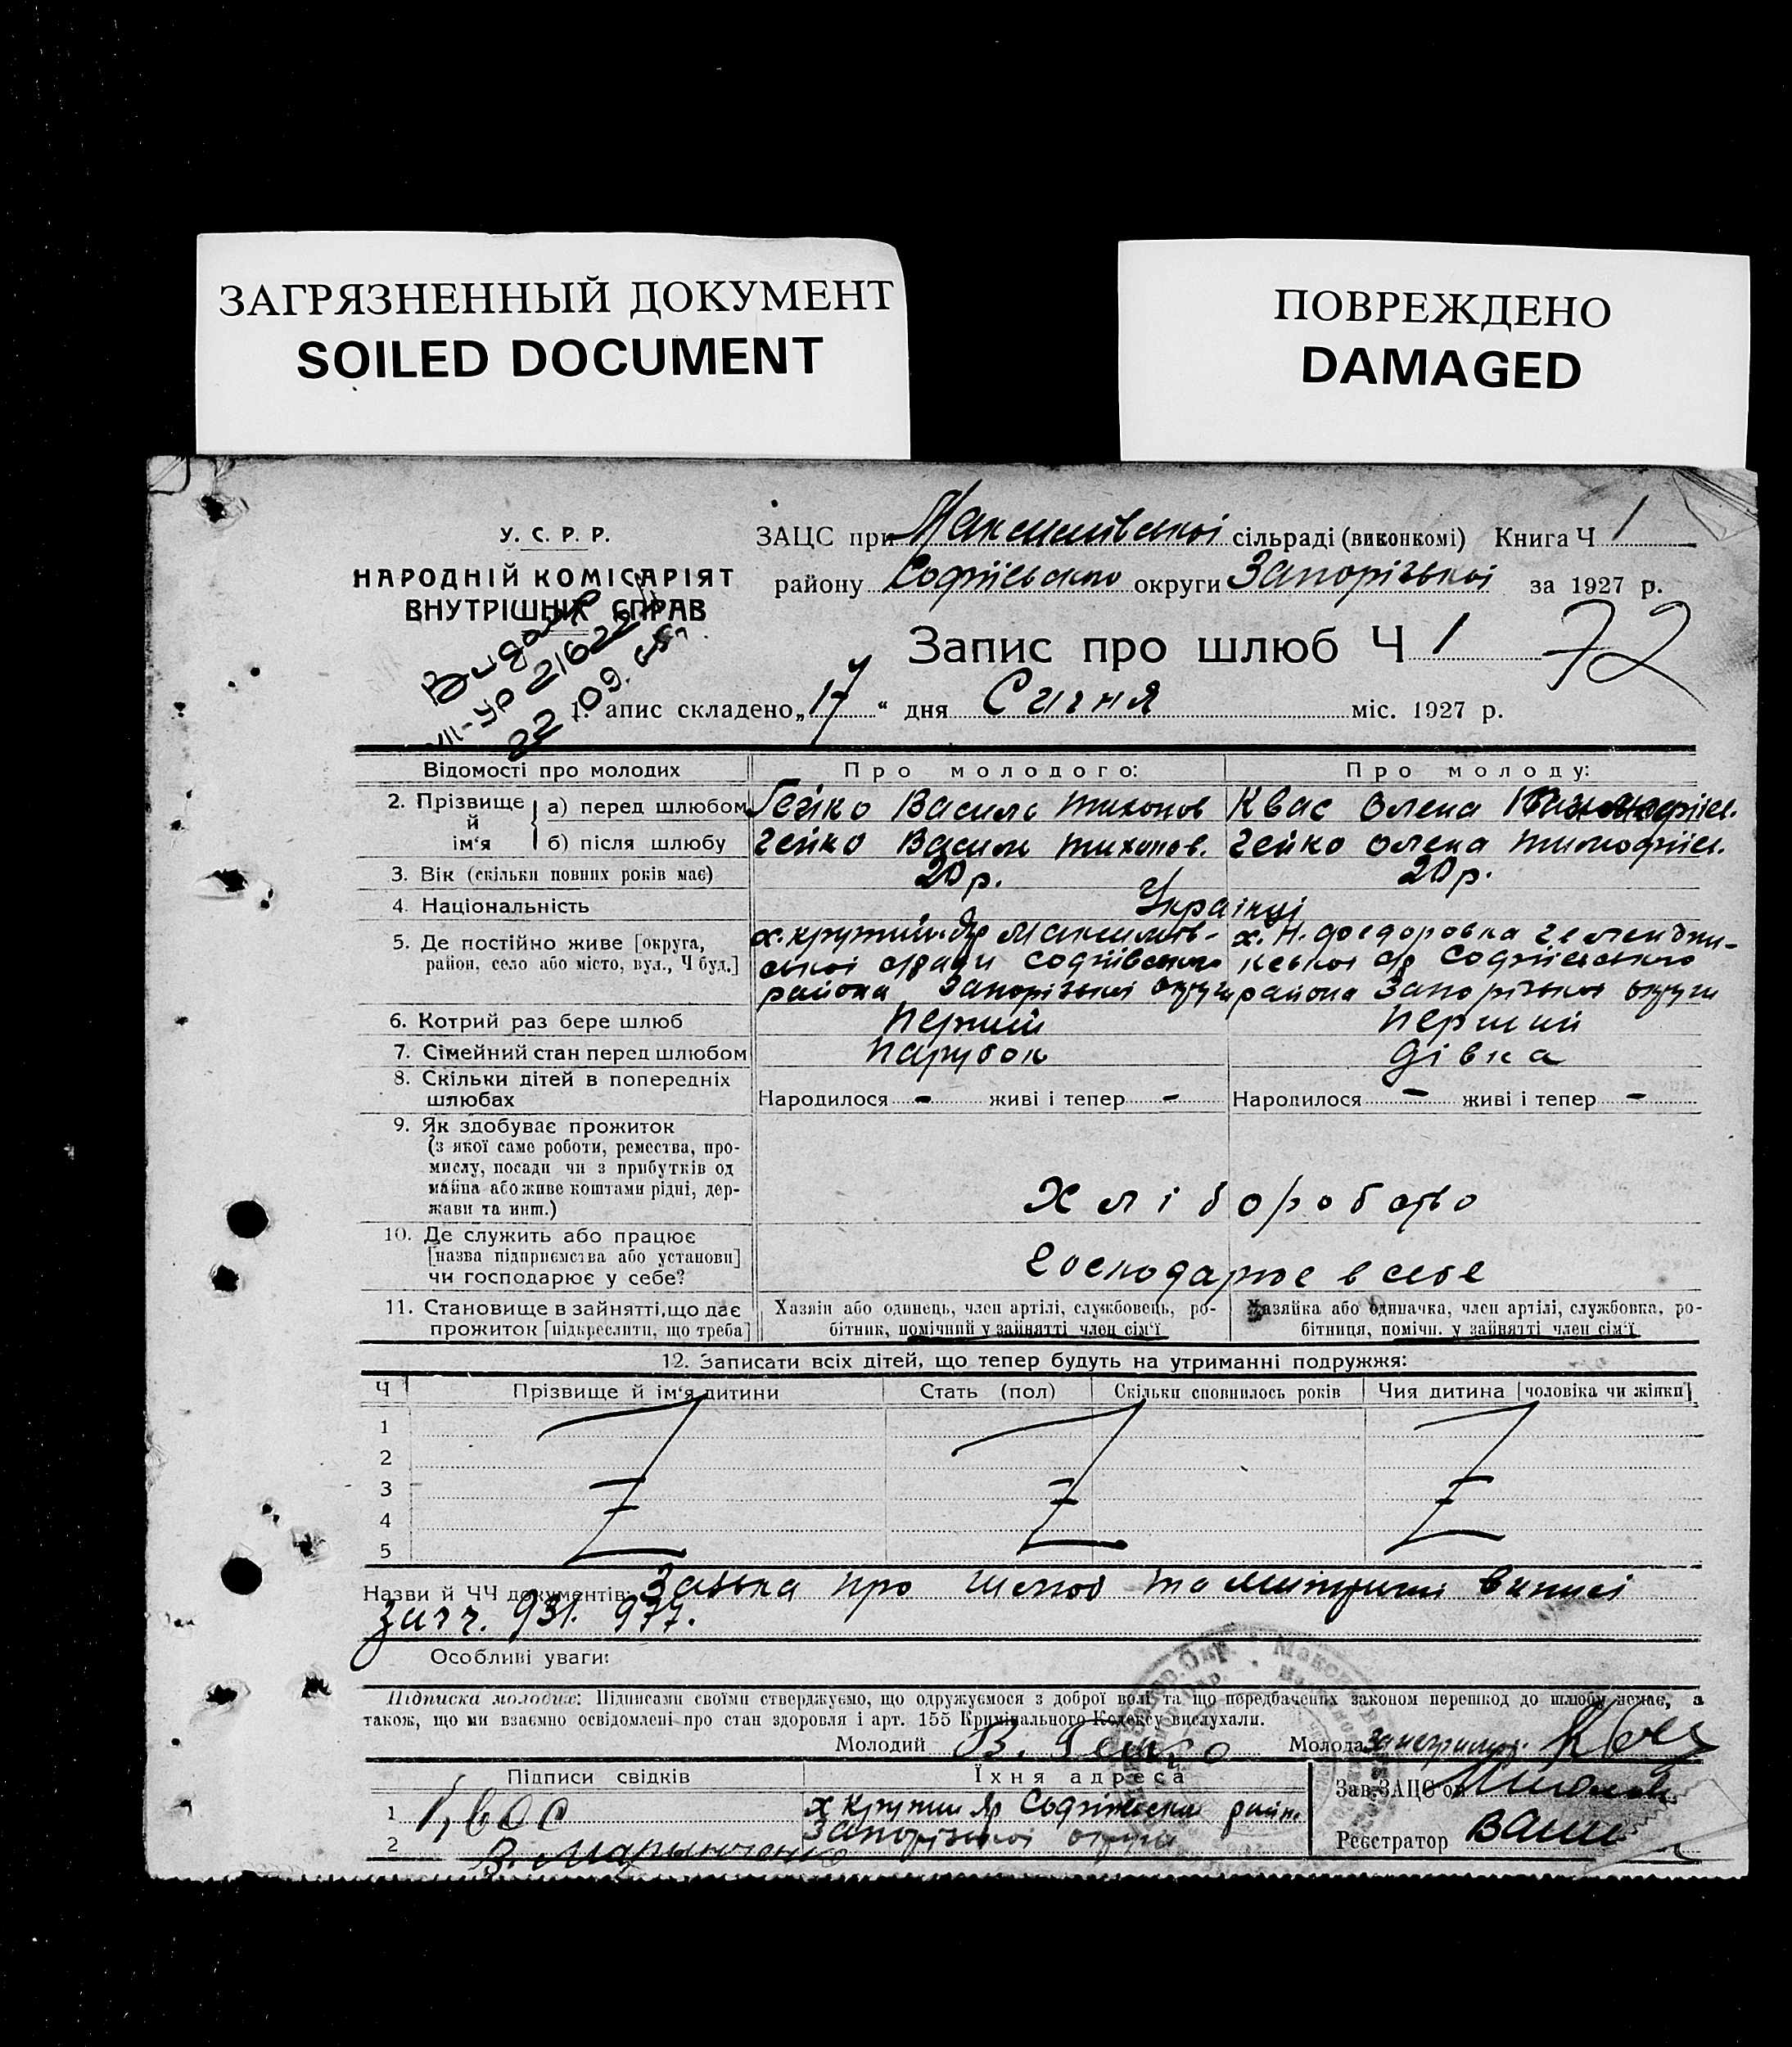 ЗАГРЯЗНЕННЫЙ ДОКУМЕНТ
SOILED DOCUMENT
ПОВРЕЖДЕНО
DAMAGED
У. С. Р. Р.
НАРОДНІЙ КОМІСАРІЯТ
ВНУТРІШНІХ СПРАВ
ЗАЦС при Максимівської сільраді (виконкомі) Книга Ч 1
району Софіївського округи Запорізької за 1927 р.
Запис про шлюб Ч 1 72
1. апис складено „17“ дня Січня міс. 1927 р.
Відомості про молодих
Про молодого:
Про молоду:
2. Прізвище й ім'я
а) перед шлюбом Гейко Василь Тихонов Квас Олена
б) після шлюбу Гейко Василь Тихонов. Гейко Олена Тимофіїв.
3. Вік (скільки повних років має) 20 р. 20 р.
4. Національність Українці
5. Де постійно живе [округа, район, село або місто, вул., Ч буд.]
х. Крутий Яр Максимів-
ської с/ради Софіївського
района Запорізької округи
х. Н. Федоровка
Софіївського
района Запорізької округи
6. Котрий раз бере шлюб перший перший
7. Сімейний стан перед шлюбом парубок дівка
8. Скільки дітей в попередніх шлюбах
Народилося - живі і тепер - Народилося - живі і тепер -
9. Як здобуває прожиток
(з якої саме роботи, ремества, про-
мислу, посади чи з прибутків од
майна або живе коштами рідні, дер-
жави та инш.)
Хліборобство
10. Де служить або працює
[назва підприємства або установи]
чи господарює у себе?
Господарює в себе
11. Становище в зайнятті, що дає
прожиток [підкреслити, що треба]
Хазяїн або одинець, член артілі, службовець, ро-
бітник, помічний у зайнятті член сім'ї
Хазяйка або одиначка, член артілі, службовка, ро-
бітниця, помічн. у зайнятті член сім'ї
12. Записати всіх дітей, що тепер будуть на утриманні подружжя:
Ч Прізвище й ім'я дитини Стать (пол) Скільки сповнилось років Чия дитина [чоловіка чи жінки]
1
2
3
4
5
Назви й ЧЧ документів: Заявка про шлюб та метричні виписі
за чч. 931. 977.
Особливі уваги:
Підписка молодих: Підписами своїми стверджуємо, що одружуємося з доброї волі та що передбачених законом перешкод до шлюбу немає, а
також, що ми взаємно освідомлені про стан здоровля і арт. 155 Кримінального Кодексу вислухали.
Молодий В. Гейко Молода
Підписи свідків
Їхня адреса
1 Квас х Крутий Яр Софіївськ. район.
Запорізької округи
2
Зав. ЗАЦС'ом
Реєстратор